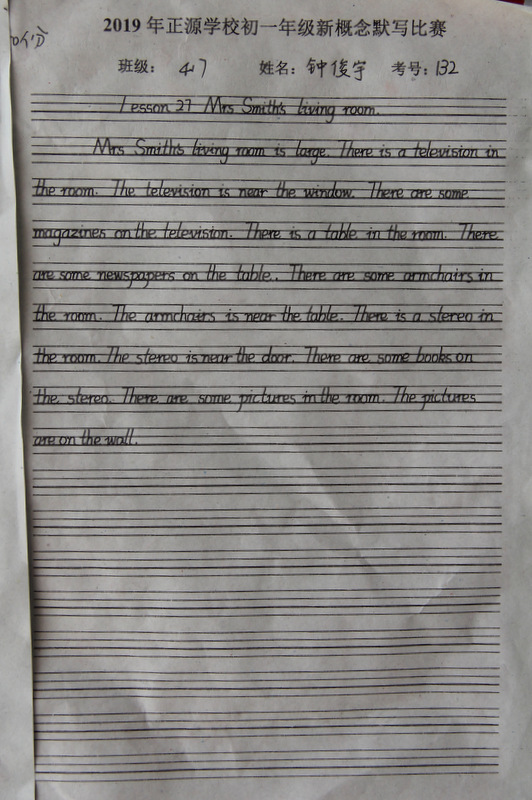 2019 年正源学校初一年级新概念默写比赛
班级： 417 姓名：钟俊宇 考号：132
Lesson 27 Mrs Smith's living room.
Mrs Smith's living room is large. There is a television in
the room. The television is near the window. There are some
magazines on the television. There is a table in the room. There
are some newspapers on the table. There are some armchairs in
the room. The armchairs is near the table. There is a stereo in
the room. The stereo is near the door. There are some books on
the stereo. There are some pictures in the room. The pictures
are on the wall.